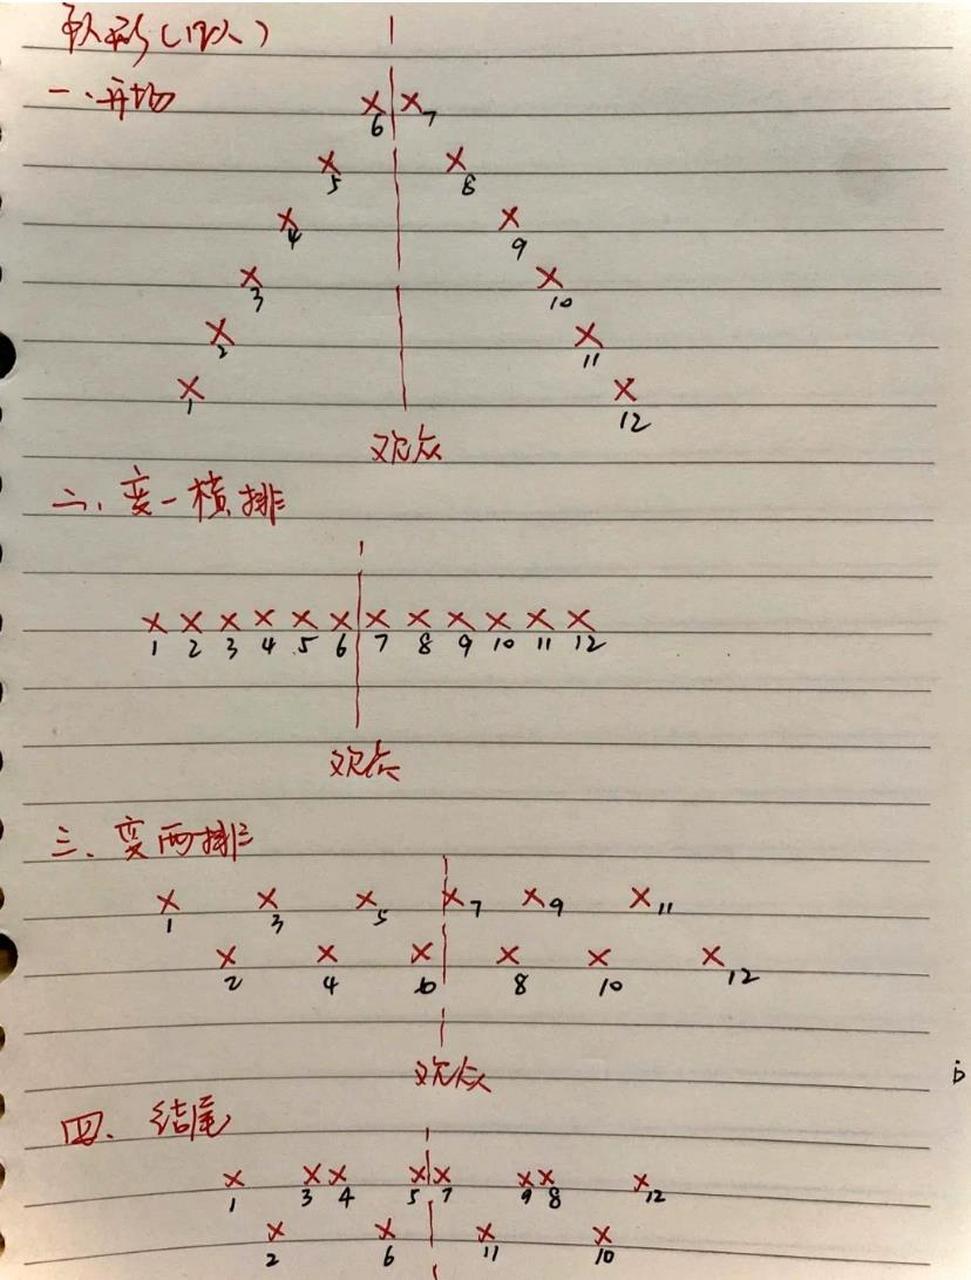 队形(12人)
一、开场
6 7
5 8
4 9
3 10
2 11
1 12
观众
二、变一横排
1 2 3 4 5 6 7 8 9 10 11 12
观众
三、变两排
1 3 5 7 9 11
2 4 6 8 10 12
观众
四、结尾
1 3 4 5 7 9 8 12
2 6 11 10